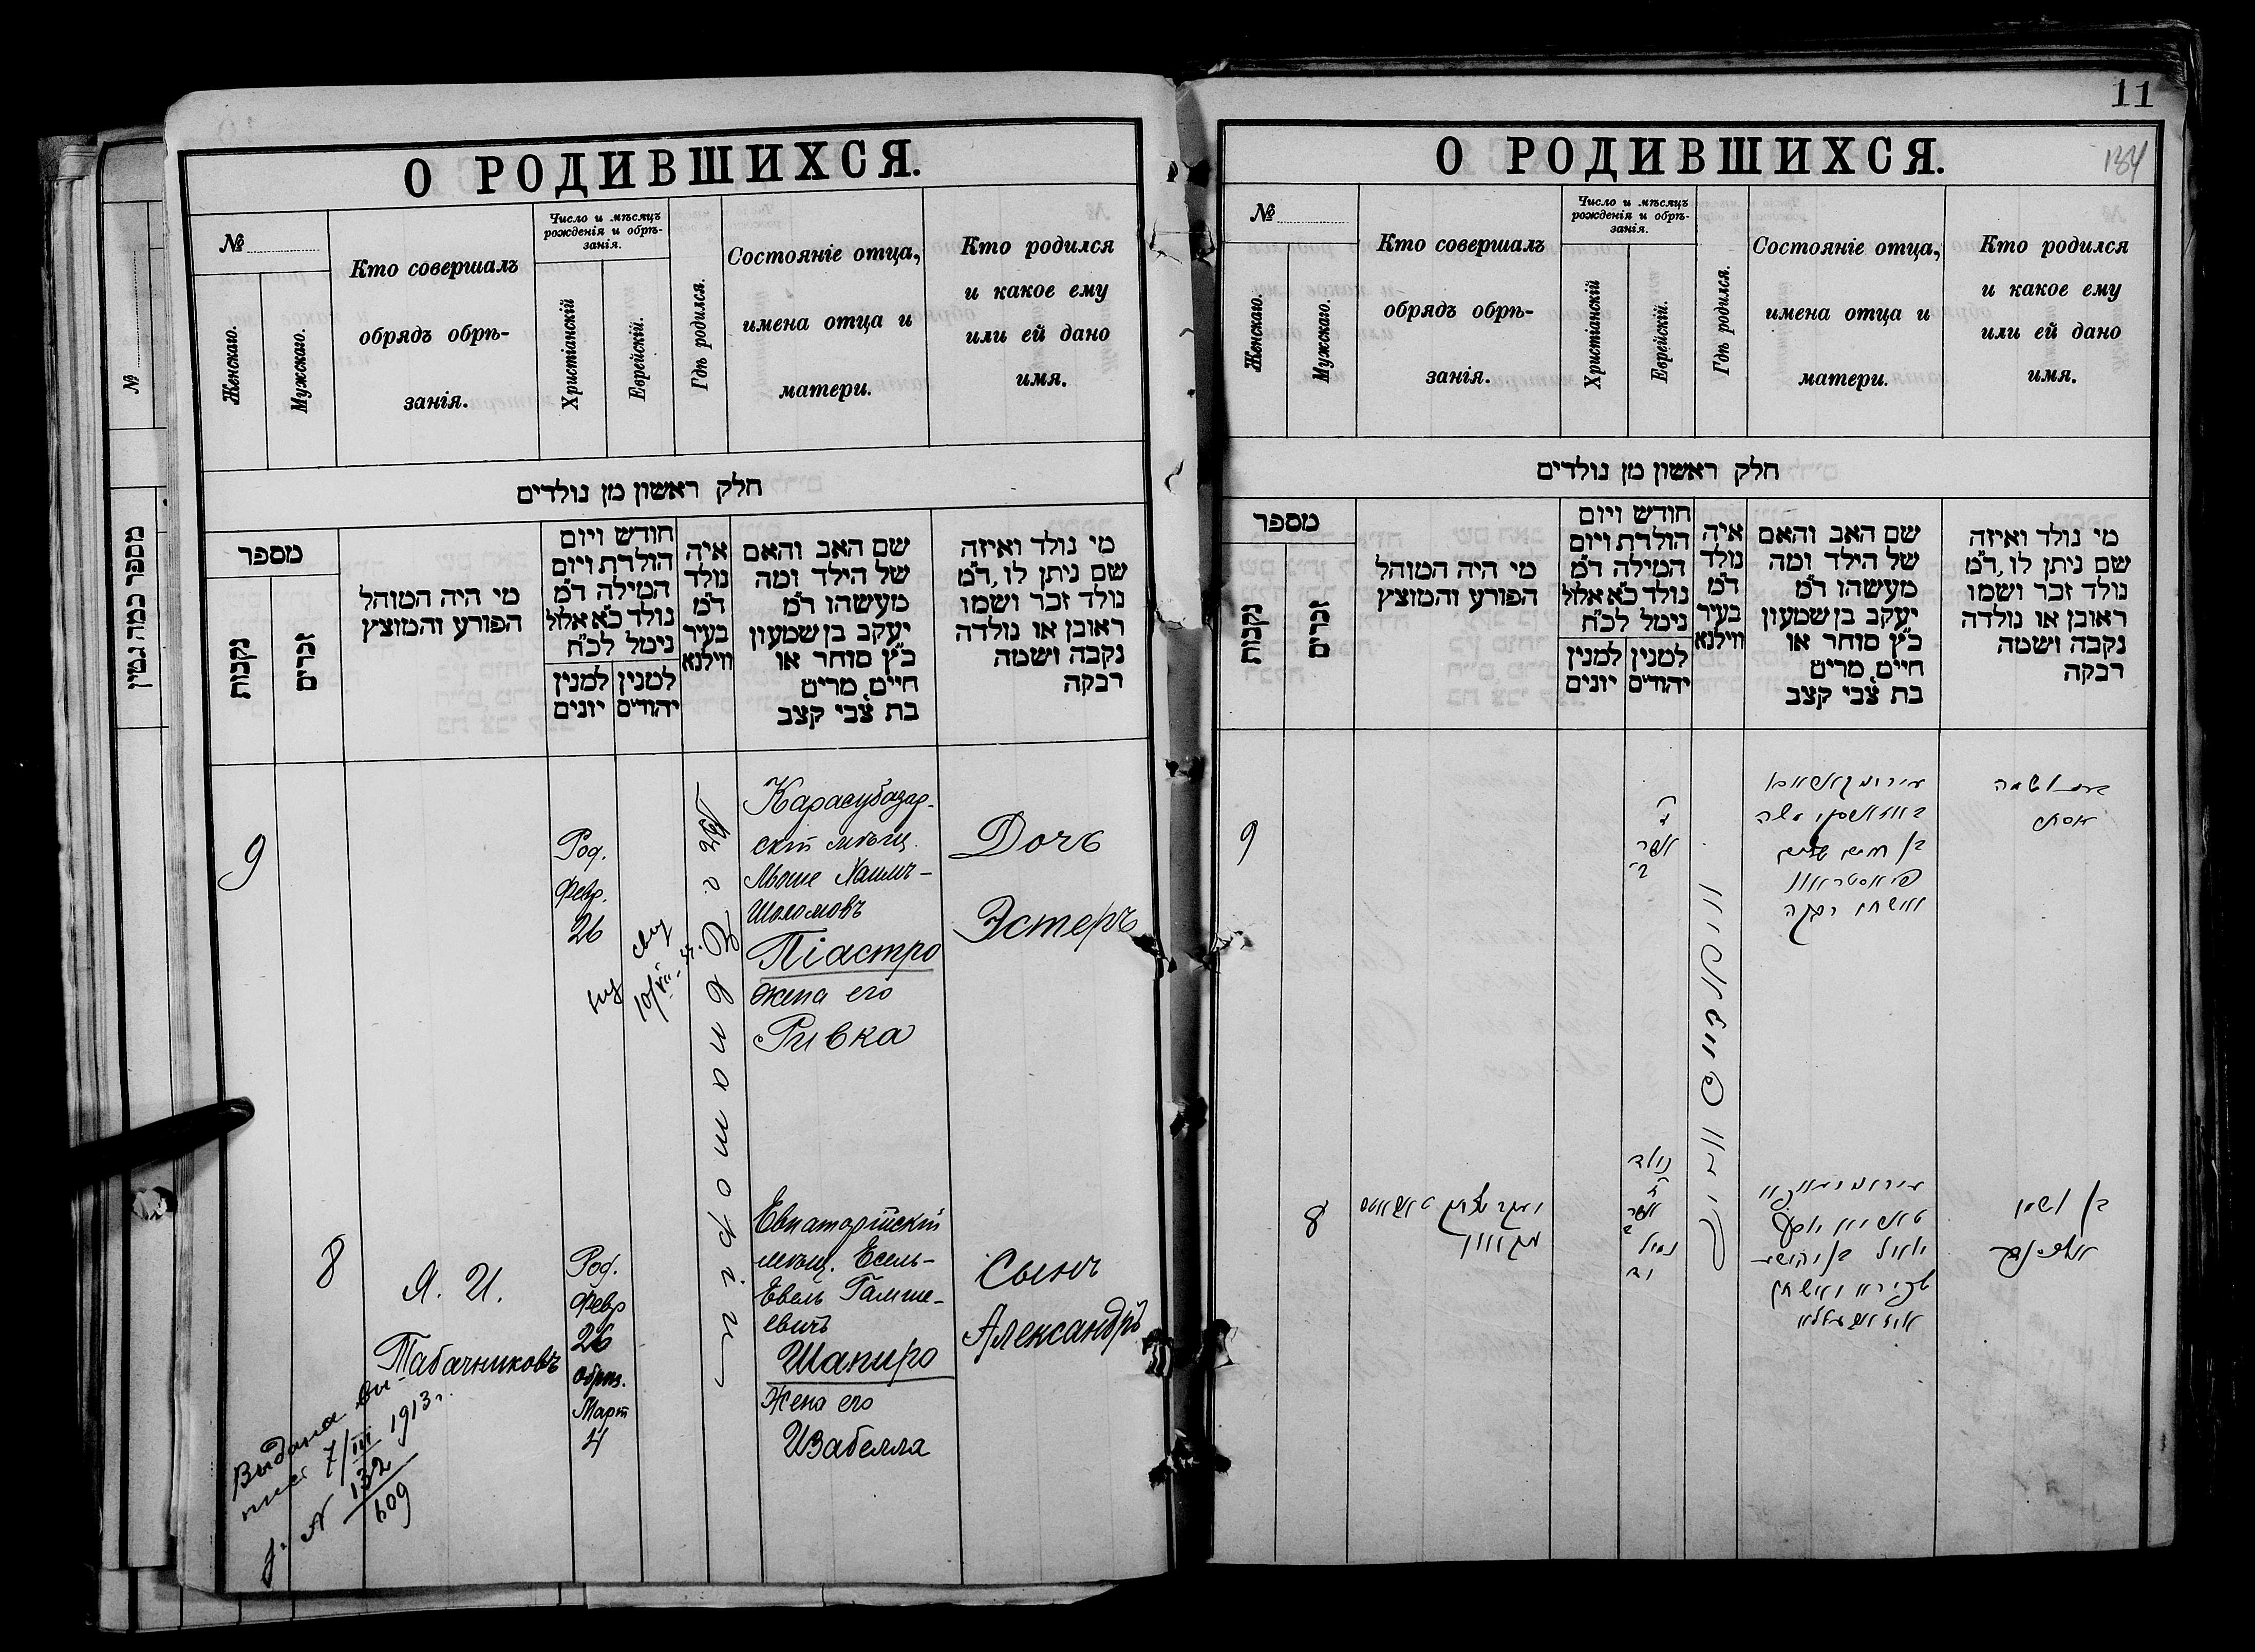 О РОДИВШИХСЯ.
№
Женскаго.
Мужскаго.
Кто совершалъ
обрядъ обрѣ-
занія.
Число и мѣсяцъ
рожденія и обрѣ-
занія.
Христіанскій
Еврейскій.
Гдѣ родился.
Состояніе отца,
имена отца и
матери.
Кто родился
и какое ему
или ей дано
имя.
חלק ראשון מן נולדים
מספר
נקבות
זכרים
מי היה המוהל
הפורע והמוצץ
חודש ויום
הולדת ויום
המילה ד״מ
נולד כ״א אלול
נימל לכ״ח
למנין
יונים
למנין
יהודים
איה
נולד
ד״מ
בעיר
ווילנא
שם האב והאם
של הילד ומה
מעשהו ד״מ
יעקב בן שמעון
כ״ץ סוחר או
חיים, מרים
בת צבי קצב
מי נולד ואיזה
שם ניתן לו, ד״מ
נולד זכר ושמו
ראובן או נולדה
נקבה ושמה
רבקה
9
Род.
Февр.
26
10/VII
Въ г. Евпаторіи
Карасубазар-
скій мѣщ.
Мошe Хаимъ-
Шоломовъ
Піастро
жена его
Ривка
Дочь
Эстеръ
8
Я. И.
Табачниковъ
Род.
Февр
26
Обрѣз.
Март
4
Евпаторійскій
мѣщ. Есель-
Евель Гамше-
евичъ
Шапиро
Жена его
Изабелла
Сынъ
Александръ
Выдана вы-
пись 7/III 1913 г.
№ 132
609
מספר כמה נמין
№
11
134
О РОДИВШИХСЯ.
№
Женскаго.
Мужскаго.
Кто совершалъ
обрядъ обрѣ-
занія.
Число и мѣсяцъ
рожденія и обрѣ-
занія.
Христіанскій
Еврейскій.
Гдѣ родился.
Состояніе отца,
имена отца и
матери.
Кто родился
и какое ему
или ей дано
имя.
חלק ראשון מן נולדים
מספר
נקבות
זכרים
מי היה המוהל
הפורע והמוצץ
חודש ויום
הולדת ויום
המילה ד״מ
נולד כ״א אלול
נימל לכ״ח
למנין
יונים
למנין
יהודים
איה
נולד
ד״מ
בעיר
ווילנא
שם האב והאם
של הילד ומה
מעשהו ד״מ
יעקב בן שמעון
כ״ץ סוחר או
חיים, מרים
בת צבי קצב
מי נולד ואיזה
שם ניתן לו, ד״מ
נולד זכר ושמו
ראובן או נולדה
נקבה ושמה
רבקה
9
אדר
משה
בן חיים שלום
פיאסטרא
ואשתו רבקה
בת ושמה
אסתר
8
נולד
אדר
נימול
שפירא ואשתו
בן ושמו
אלכסנדר